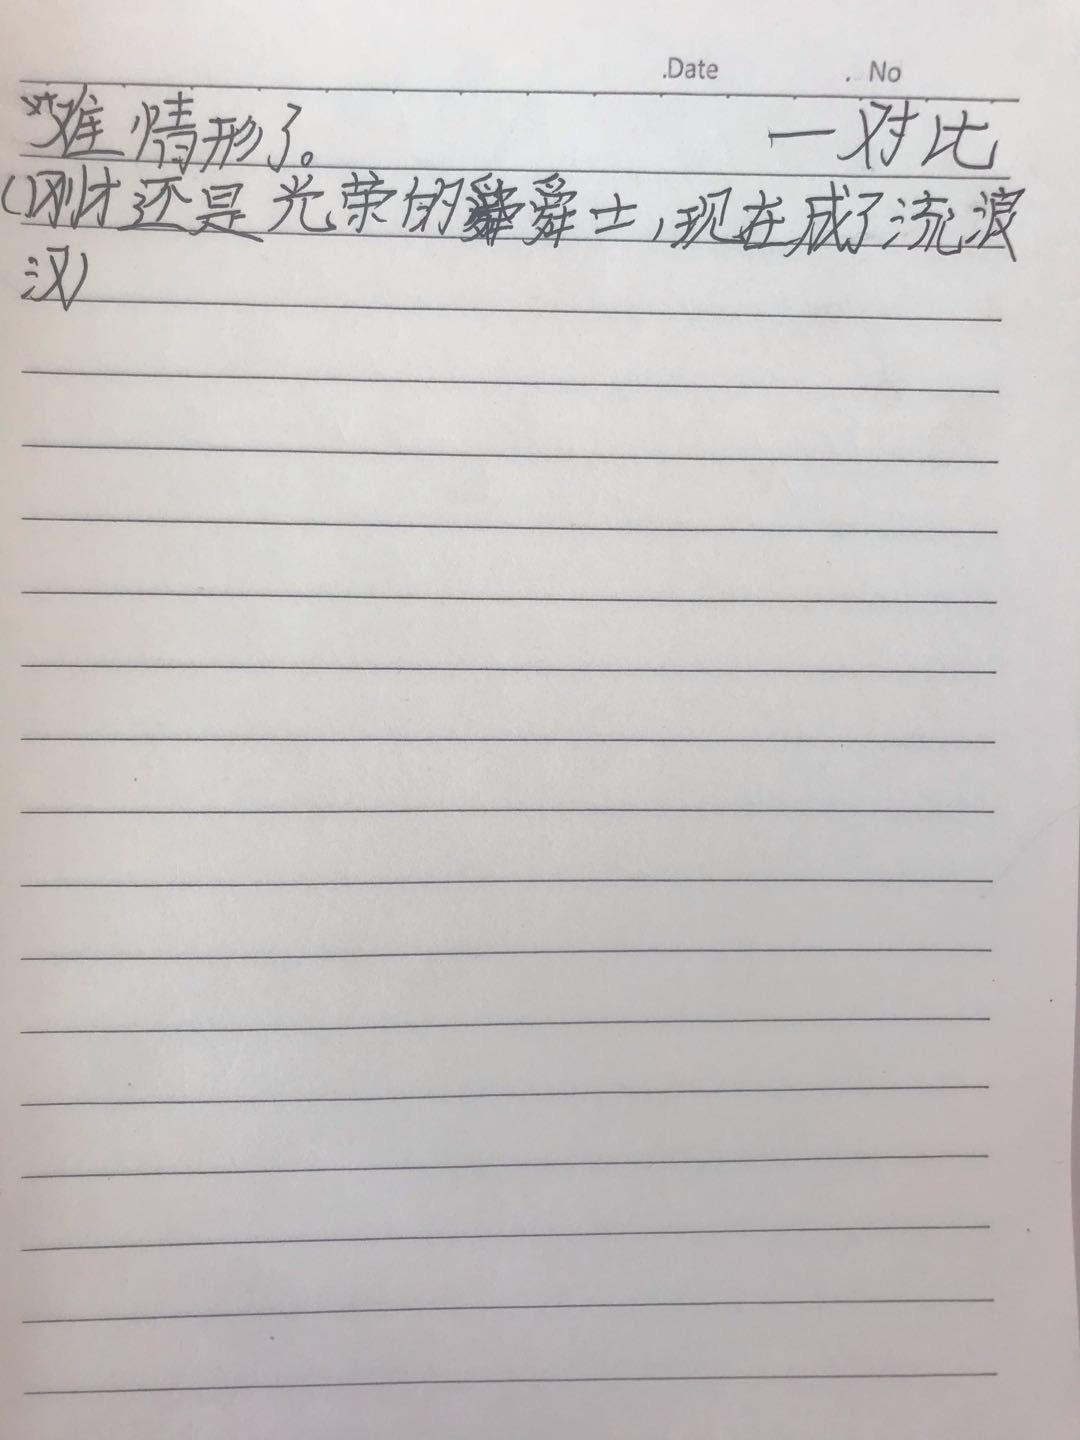 .Date . No
难情形了。 一对比
(刚才还是光荣的舜士,现在成了流浪
汉)